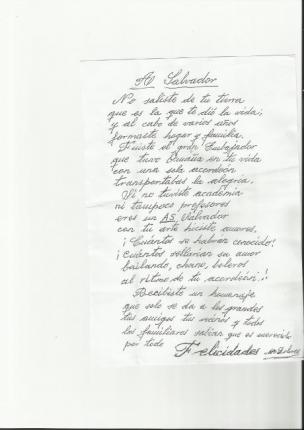 A Salvador
No saliste de tu tierra
que es la que te dió la vida;
y al cabo de varios años
formaste hogar y familia.
Fuiste el gran
que tuvo en tu vida
con una sola acordeón
transportabas la alegría.
Si no tuviste academia
ni tampoco profesores
eres un AS Salvador
con tu arte hiciste amores.
¡Cuántos se habrán conocido!
¡Cuántos sellarían su amor
bailando, boleros
al ritmo de tu acordeón!!
Recibiste un homenaje
que solo se da a los grandes
tus amigos tus vecinos y todos
los familiares sabían que es merecido
por todo Felicidades